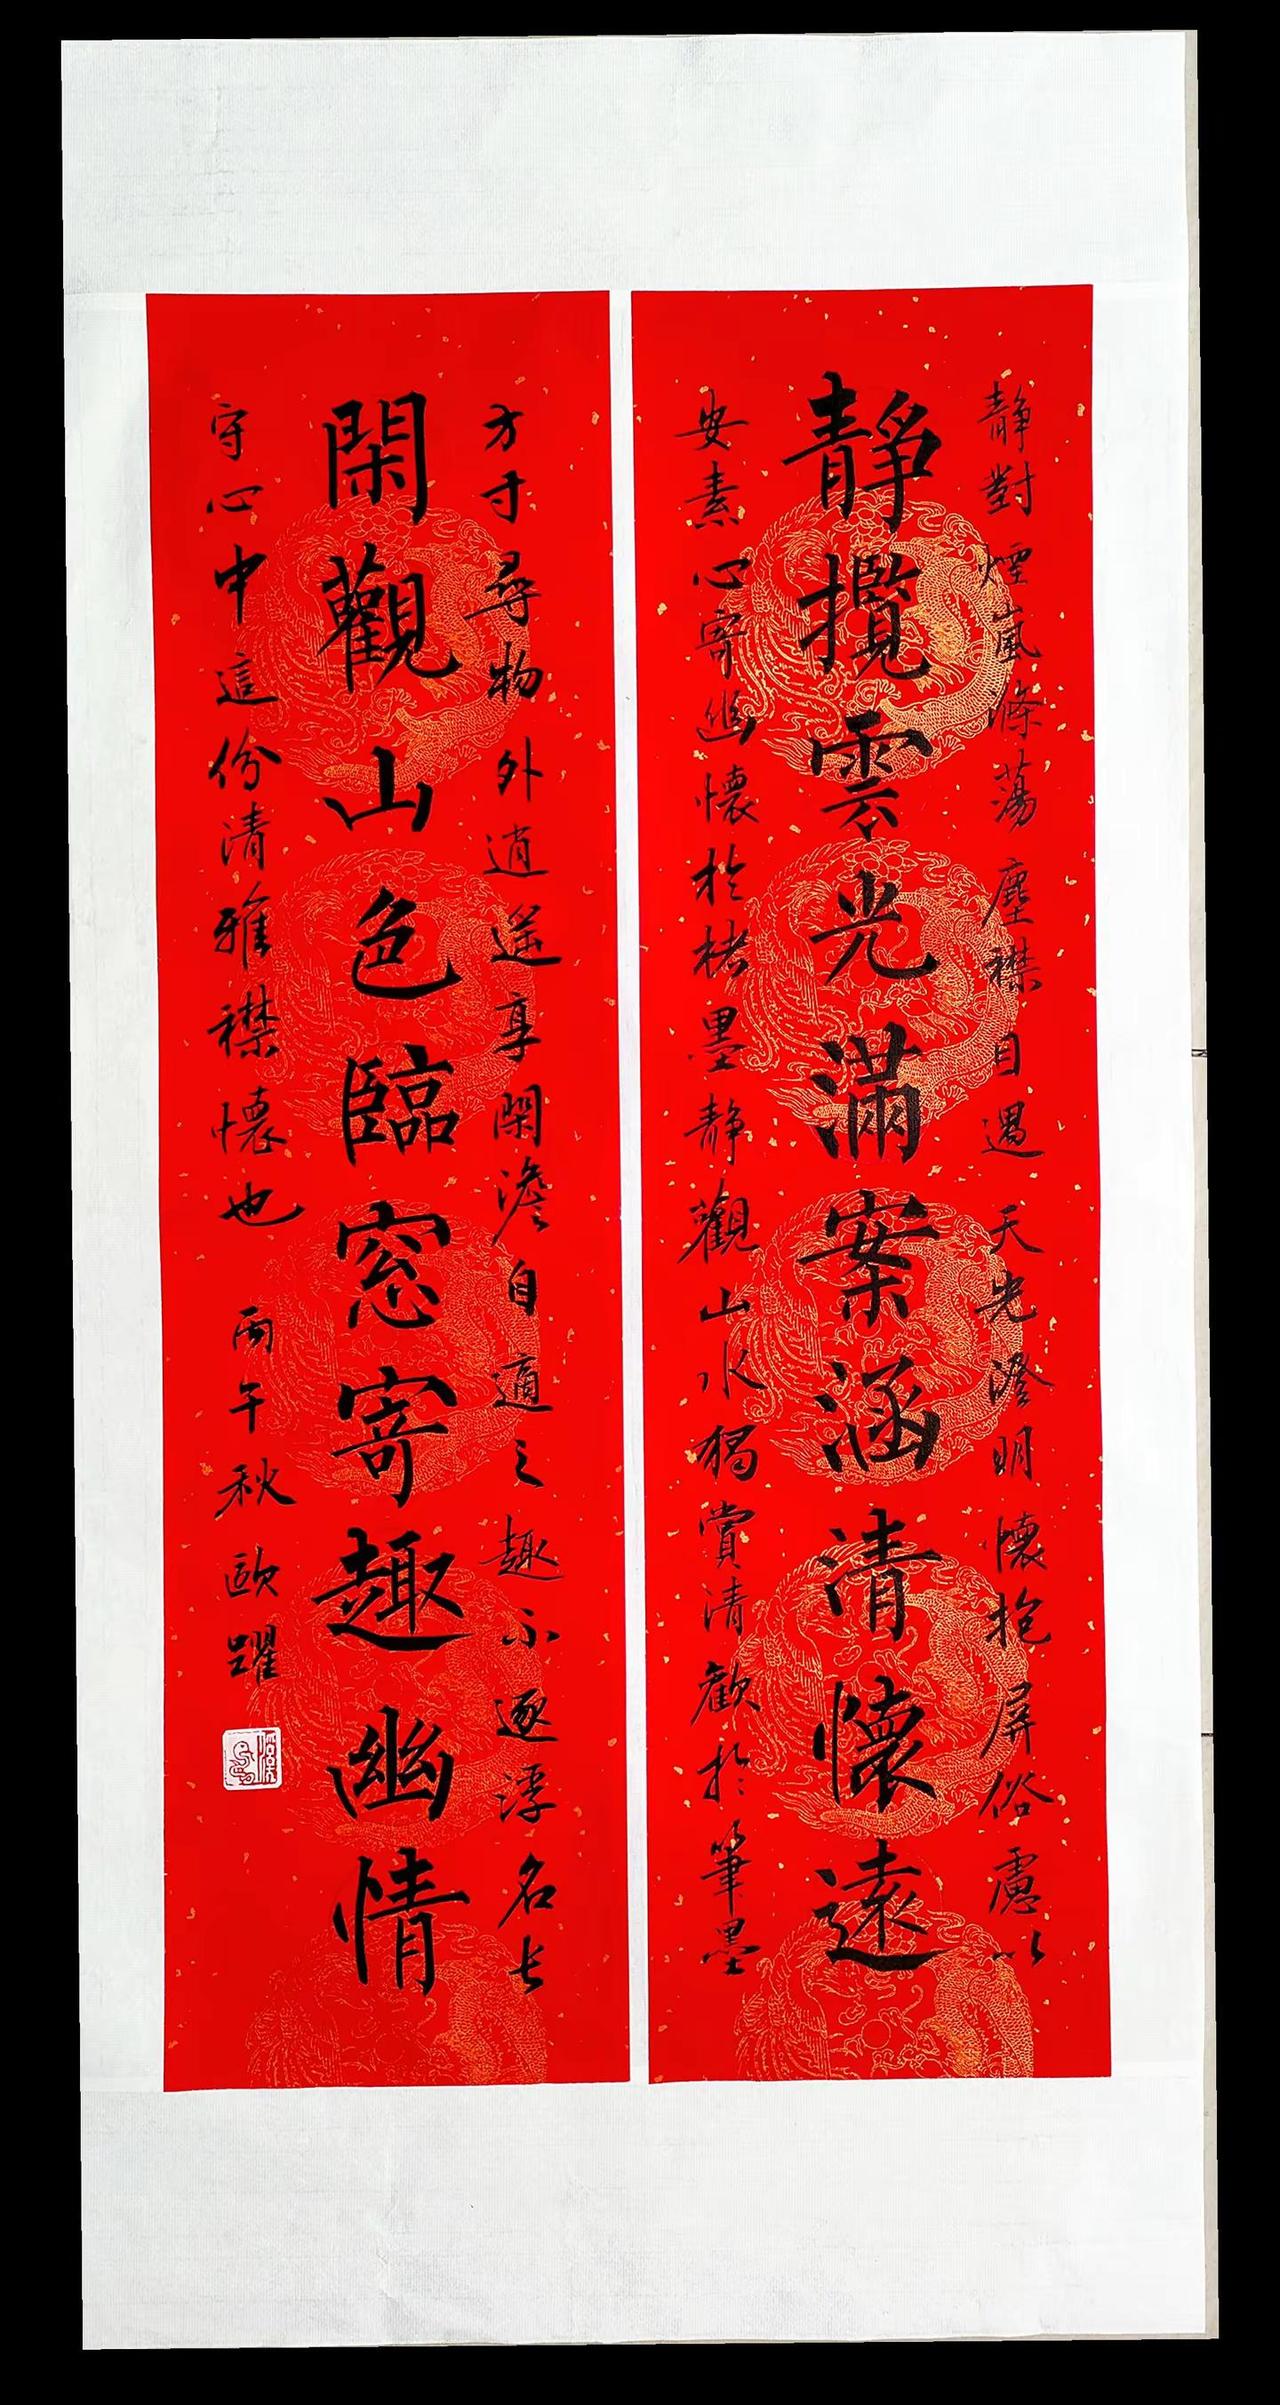 靜對煙嵐滌蕩塵襟目遇天光澄明懷抱屏俗慮以
靜攬雲光滿案涵清懷遠
安素心寄幽懷於楮墨靜觀山水獨賞清歡於筆墨
方寸尋物外逍遥享閑澹自適之趣不逐浮名長
閑觀山色臨窓寄趣幽情
守心中這份清雅襟懷也 丙午秋 歐躍